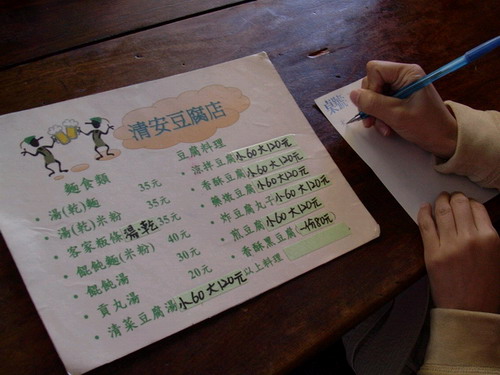 清安豆腐店
麵食類
湯(乾)麵 35元
湯(乾)米粉 35元
客家粄條湯乾35元
餛飩麵(米粉) 40元
餛飩湯 30元
貢丸湯 20元
清菜豆腐湯小60大120元
豆腐料理
涼拌豆腐小60大120元
香酥豆腐小60大120元
藥燉豆腐小60大120元
炸豆腐丸子小60大120元
煎豆腐小60大120元
香酥黑豆腐(一份80元)
以上料理
桌號